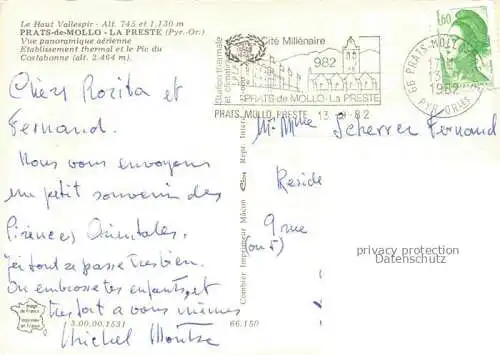 Le Haut Vallespir - Alt. 745 et 1,130 m
PRATS-de-MOLLO - LA PRESTE (Pyr.-Or.)
Vue panoramique aérienne
Etablissement thermal et le Pic du
Costabonne (alt. 2.464 m).
Station thermale
et climatique
Cité Millénaire
982
PRATS-de-MOLLO-LA PRESTE
PRATS MOLLO PRESTE 13 82
1,60
66 PRATS-MOLLO
13
1982
PYR. ORLES
Chers Rozita et
Fernand.
Nous vous envoyons
un petit souvenir des
Pirences Orientales.
ici tout se passe tres bien.
On embrosse tes enfants et
tres fort a vous mêmes
Michel
Mr Mme Scherrer Fernand
Reside
9 rue
(ou 5)
privacy protection
Datenschutz
Combier Imprimeur Mâcon
Image
de France
imprimée
en France
3.00.00.1531
66.150